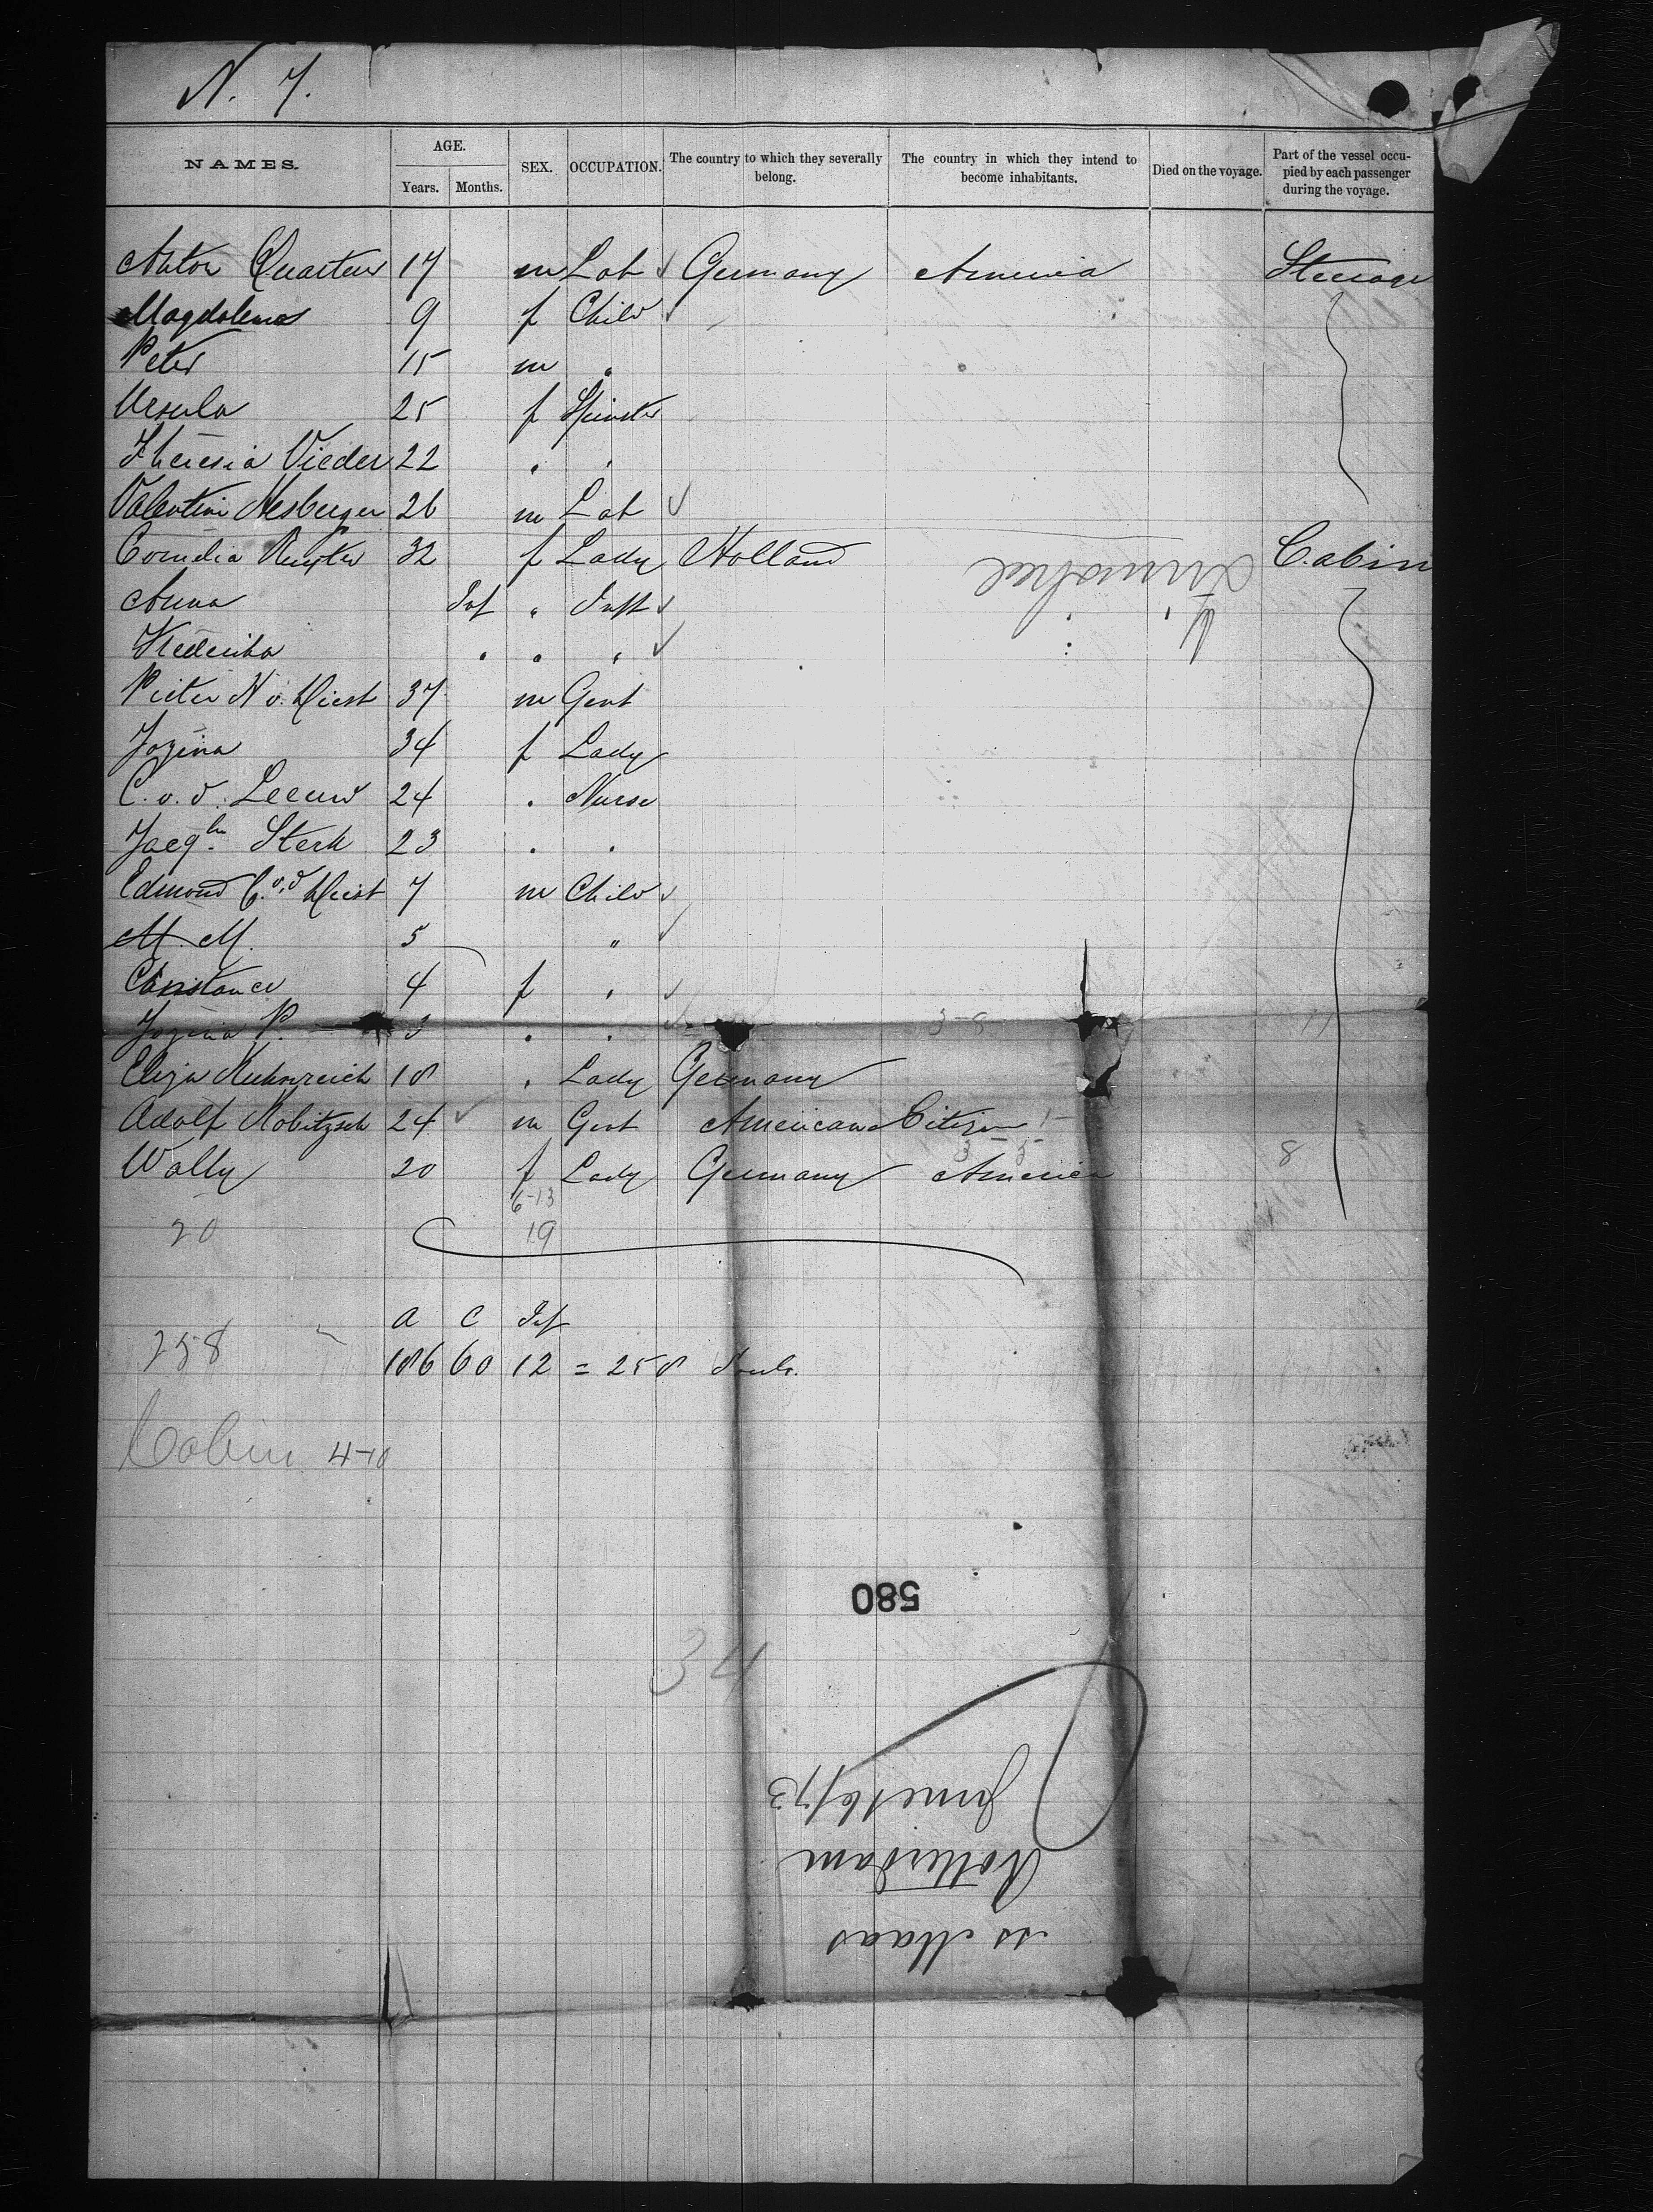 N. 7.
NAMES. AGE. Years. Months. SEX. OCCUPATION. The country to which they severally belong. The country in which they intend to become inhabitants. Died on the voyage. Part of the vessel occupied by each passenger during the voyage.
Anton 17 m Lab Germany America Steerage
Magdalena 9 f Child
Peter 15 m "
Ursula 25 f Spinster
Theresia Vieder 22 " "
Valentin Nesberger 26 m Lab
Cornelia Ruyter 32 f Lady Holland Cabin
Anna Inf " Inft
Frederika " " "
Pieter N v. Diest 37 m Gent
Jozina 34 f Lady
C. v. d. Leeuw 24 " Nurse
Jacqln Sterk 23 " "
Edmond C. v. d Diest 7 m Child
M. M. 5 "
Constance 4 f "
Jozina P. 3 " " 3-8 11
Eliza Kuhnreich 18 " Lady Germany
Adolf Nobitzsch 24 m Gent American Citizen 1-
Wally 20 f Lady Germany America 8
6-13
20 19
a c Inf
258 186 60 12 = 258 Souls.
Cabin 4-10
580
34
ss Maas
Rotterdam
June 16/73